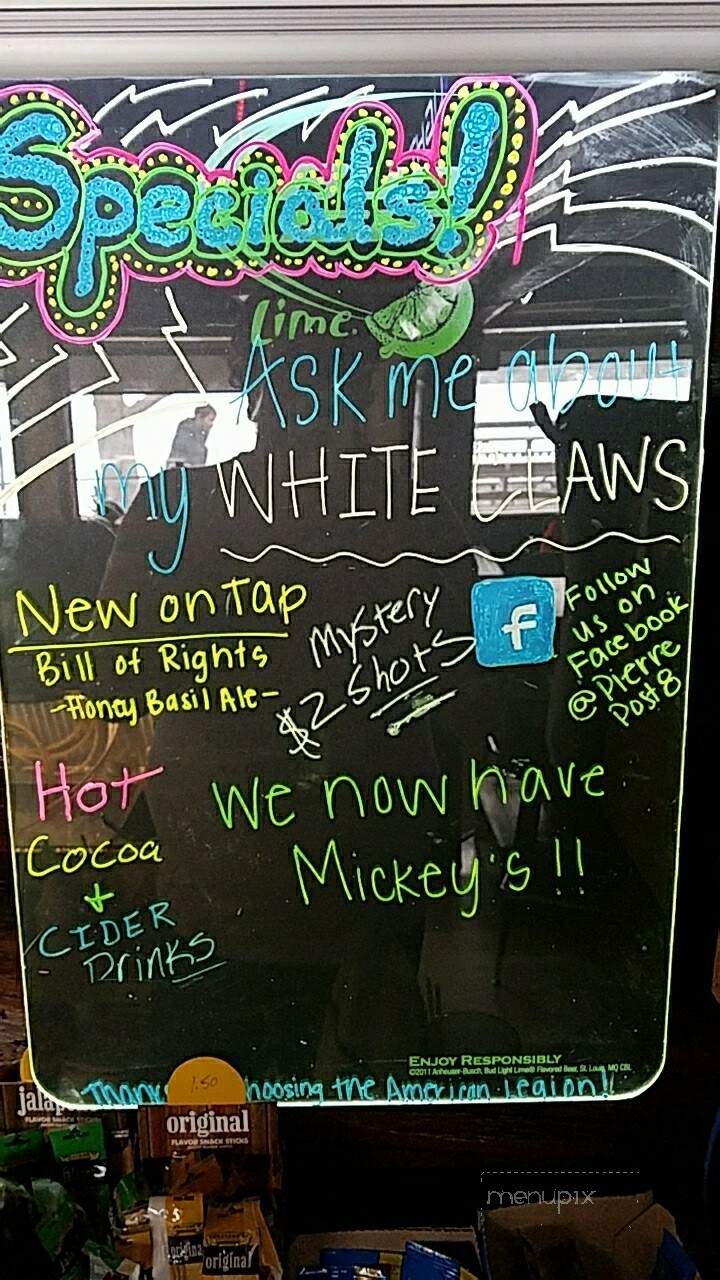 Specials!
Lime.
Ask me about
my WHITE CLAWS
New on Tap
Bill of Rights
-Honey Basil Ale-
Mystery
$2 Shots
f
Follow
us on
Facebook
@Pierre
Post8
Hot
Cocoa
+
CIDER
Drinks
We now have
Mickey's !!
ENJOY RESPONSIBLY
©2011 Anheuser-Busch, Bud Light Lime® Flavored Beer, St. Louis, MO
hoosing the American Legion!!
1.50
original
FLAVOR SNACK STICKS
original
original
menupix